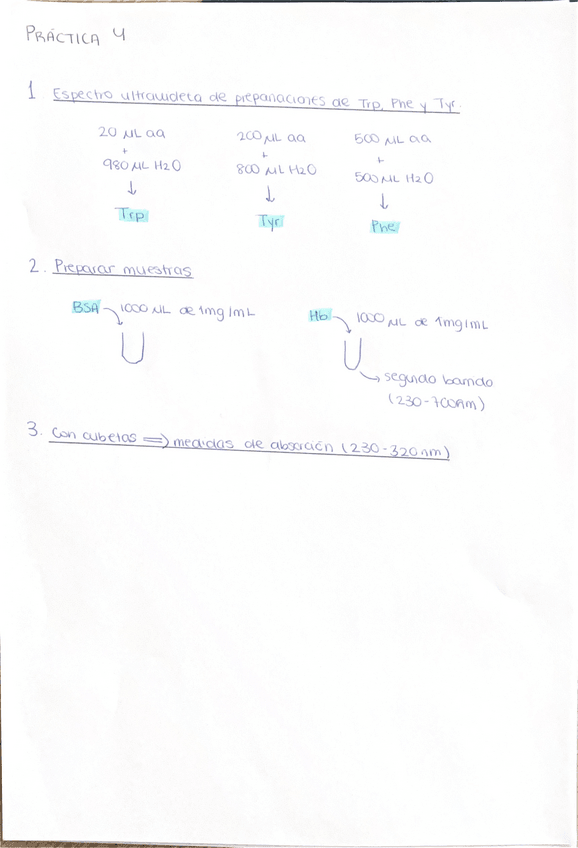 PRÁCTICA 4
1 Espectro ultravioleta de preparaciones de Trp, Phe y Tyr.
20 µL aa
+
980 µL H2O
↓
Trp
200 µL aa
+
800 µL H2O
↓
Tyr
500 µL aa
+
500 µL H2O
↓
Phe
2. Preparar muestras
BSA 1000 µL de 1mg/mL
Hb 1000 µL de 1mg/mL
segundo barrido
(230-700nm)
3. Con cubetas => medidas de absorción (230-320nm)